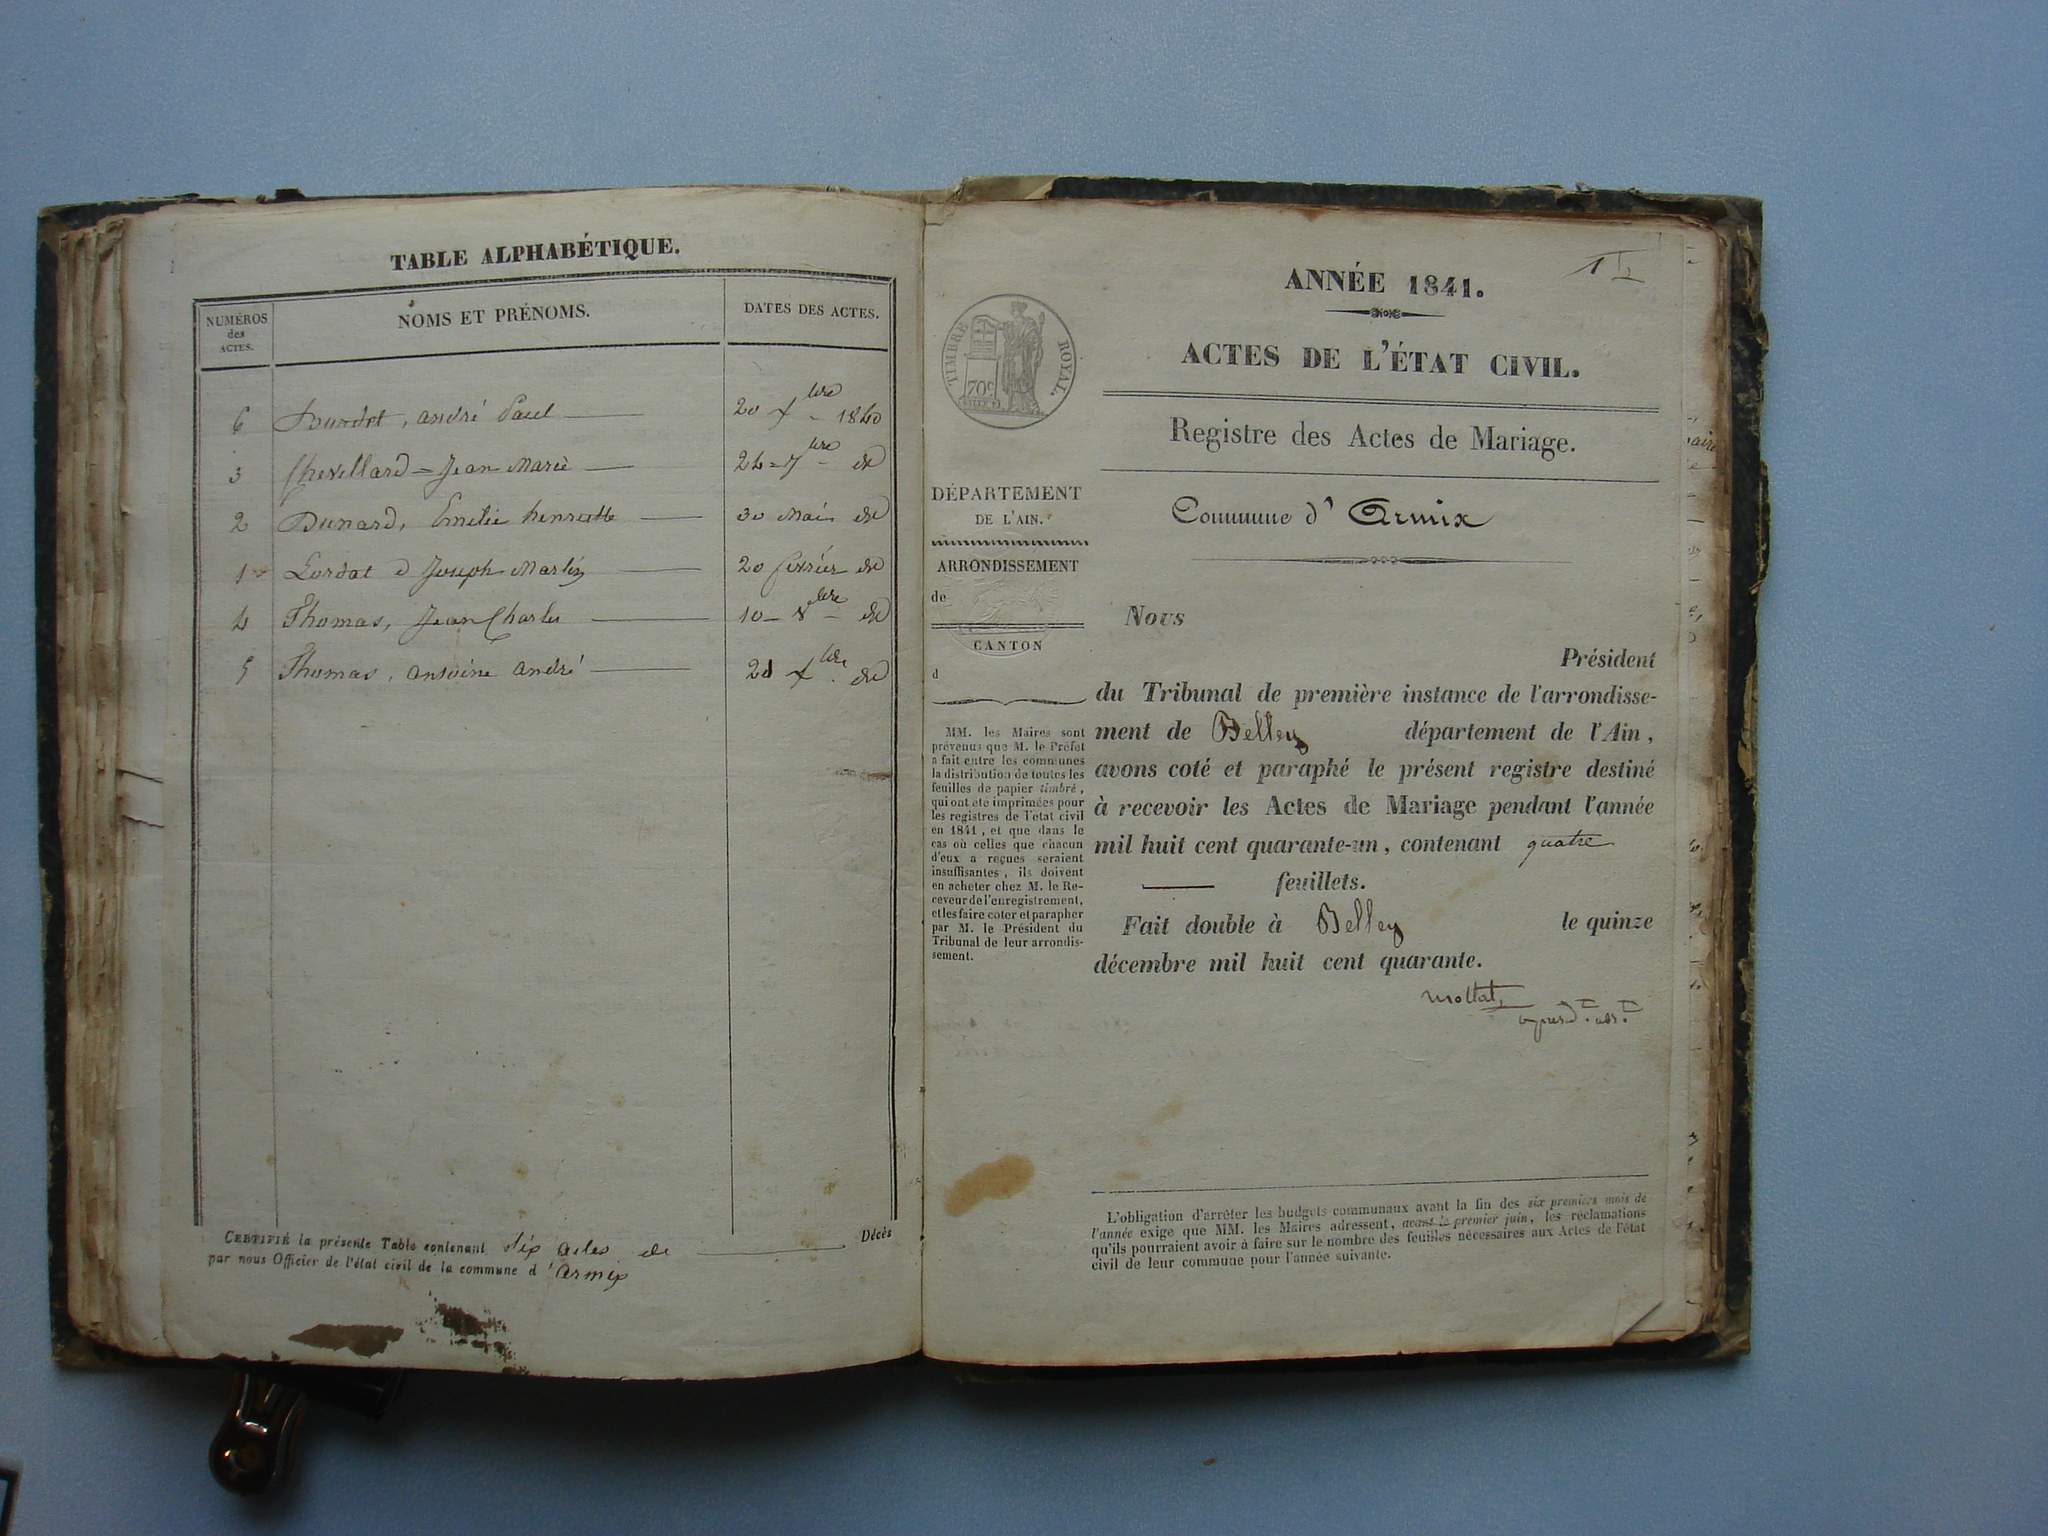 TABLE ALPHABÉTIQUE.
NUMÉROS
des
ACTES.
NOMS ET PRÉNOMS.
DATES DES ACTES.
6 andré Paul 20 Xbre 1840
3 Chevillard = Jean Marie 24 = 7bre do
2 Dunard, Emélie henriette 30 Mai do
1 Lordat Joseph Martin 20 février do
4 Thomas, Jean Charles 10 - 8bre - do
5 Thomas, antoine andré Xbre do
CERTIFIÉ la présente Table contenant Six actes de Décès
par nous Officier de l'état civil de la commune d'armix
1
ANNÉE 1841.
ACTES DE L'ÉTAT CIVIL.
TIMBRE ROYAL.
70c
Registre des Actes de Mariage.
Commune d' Armix
DÉPARTEMENT
DE L'AIN.
ARRONDISSEMENT
de
CANTON
d
MM. les Maires sont
prévenus que M. le Préfet
a fait entre les communes
la distribution de toutes les
feuilles de papier timbré,
qui ont été imprimées pour
les registres de l'état civil
en 1841, et que dans le
cas où celles que chacun
d'eux a reçues seraient
insuffisantes, ils doivent
en acheter chez M. le Re-
ceveur de l'enregistrement,
et les faire coter et parapher
par M. le Président du
Tribunal de leur arrondis-
sement.
Nous
Président
du Tribunal de première instance de l'arrondisse-
ment de Belley département de l'Ain,
avons coté et paraphé le présent registre destiné
à recevoir les Actes de Mariage pendant l'année
mil huit cent quarante-un, contenant quatre
feuillets.
Fait double à Belley le quinze
décembre mil huit cent quarante.
L'obligation d'arrêter les budgets communaux avant la fin des six premiers mois de
l'année exige que MM. les Maires adressent, avant le premier juin, les réclamations
qu'ils pourraient avoir à faire sur le nombre des feuilles nécessaires aux Actes de l'état
civil de leur commune pour l'année suivante.